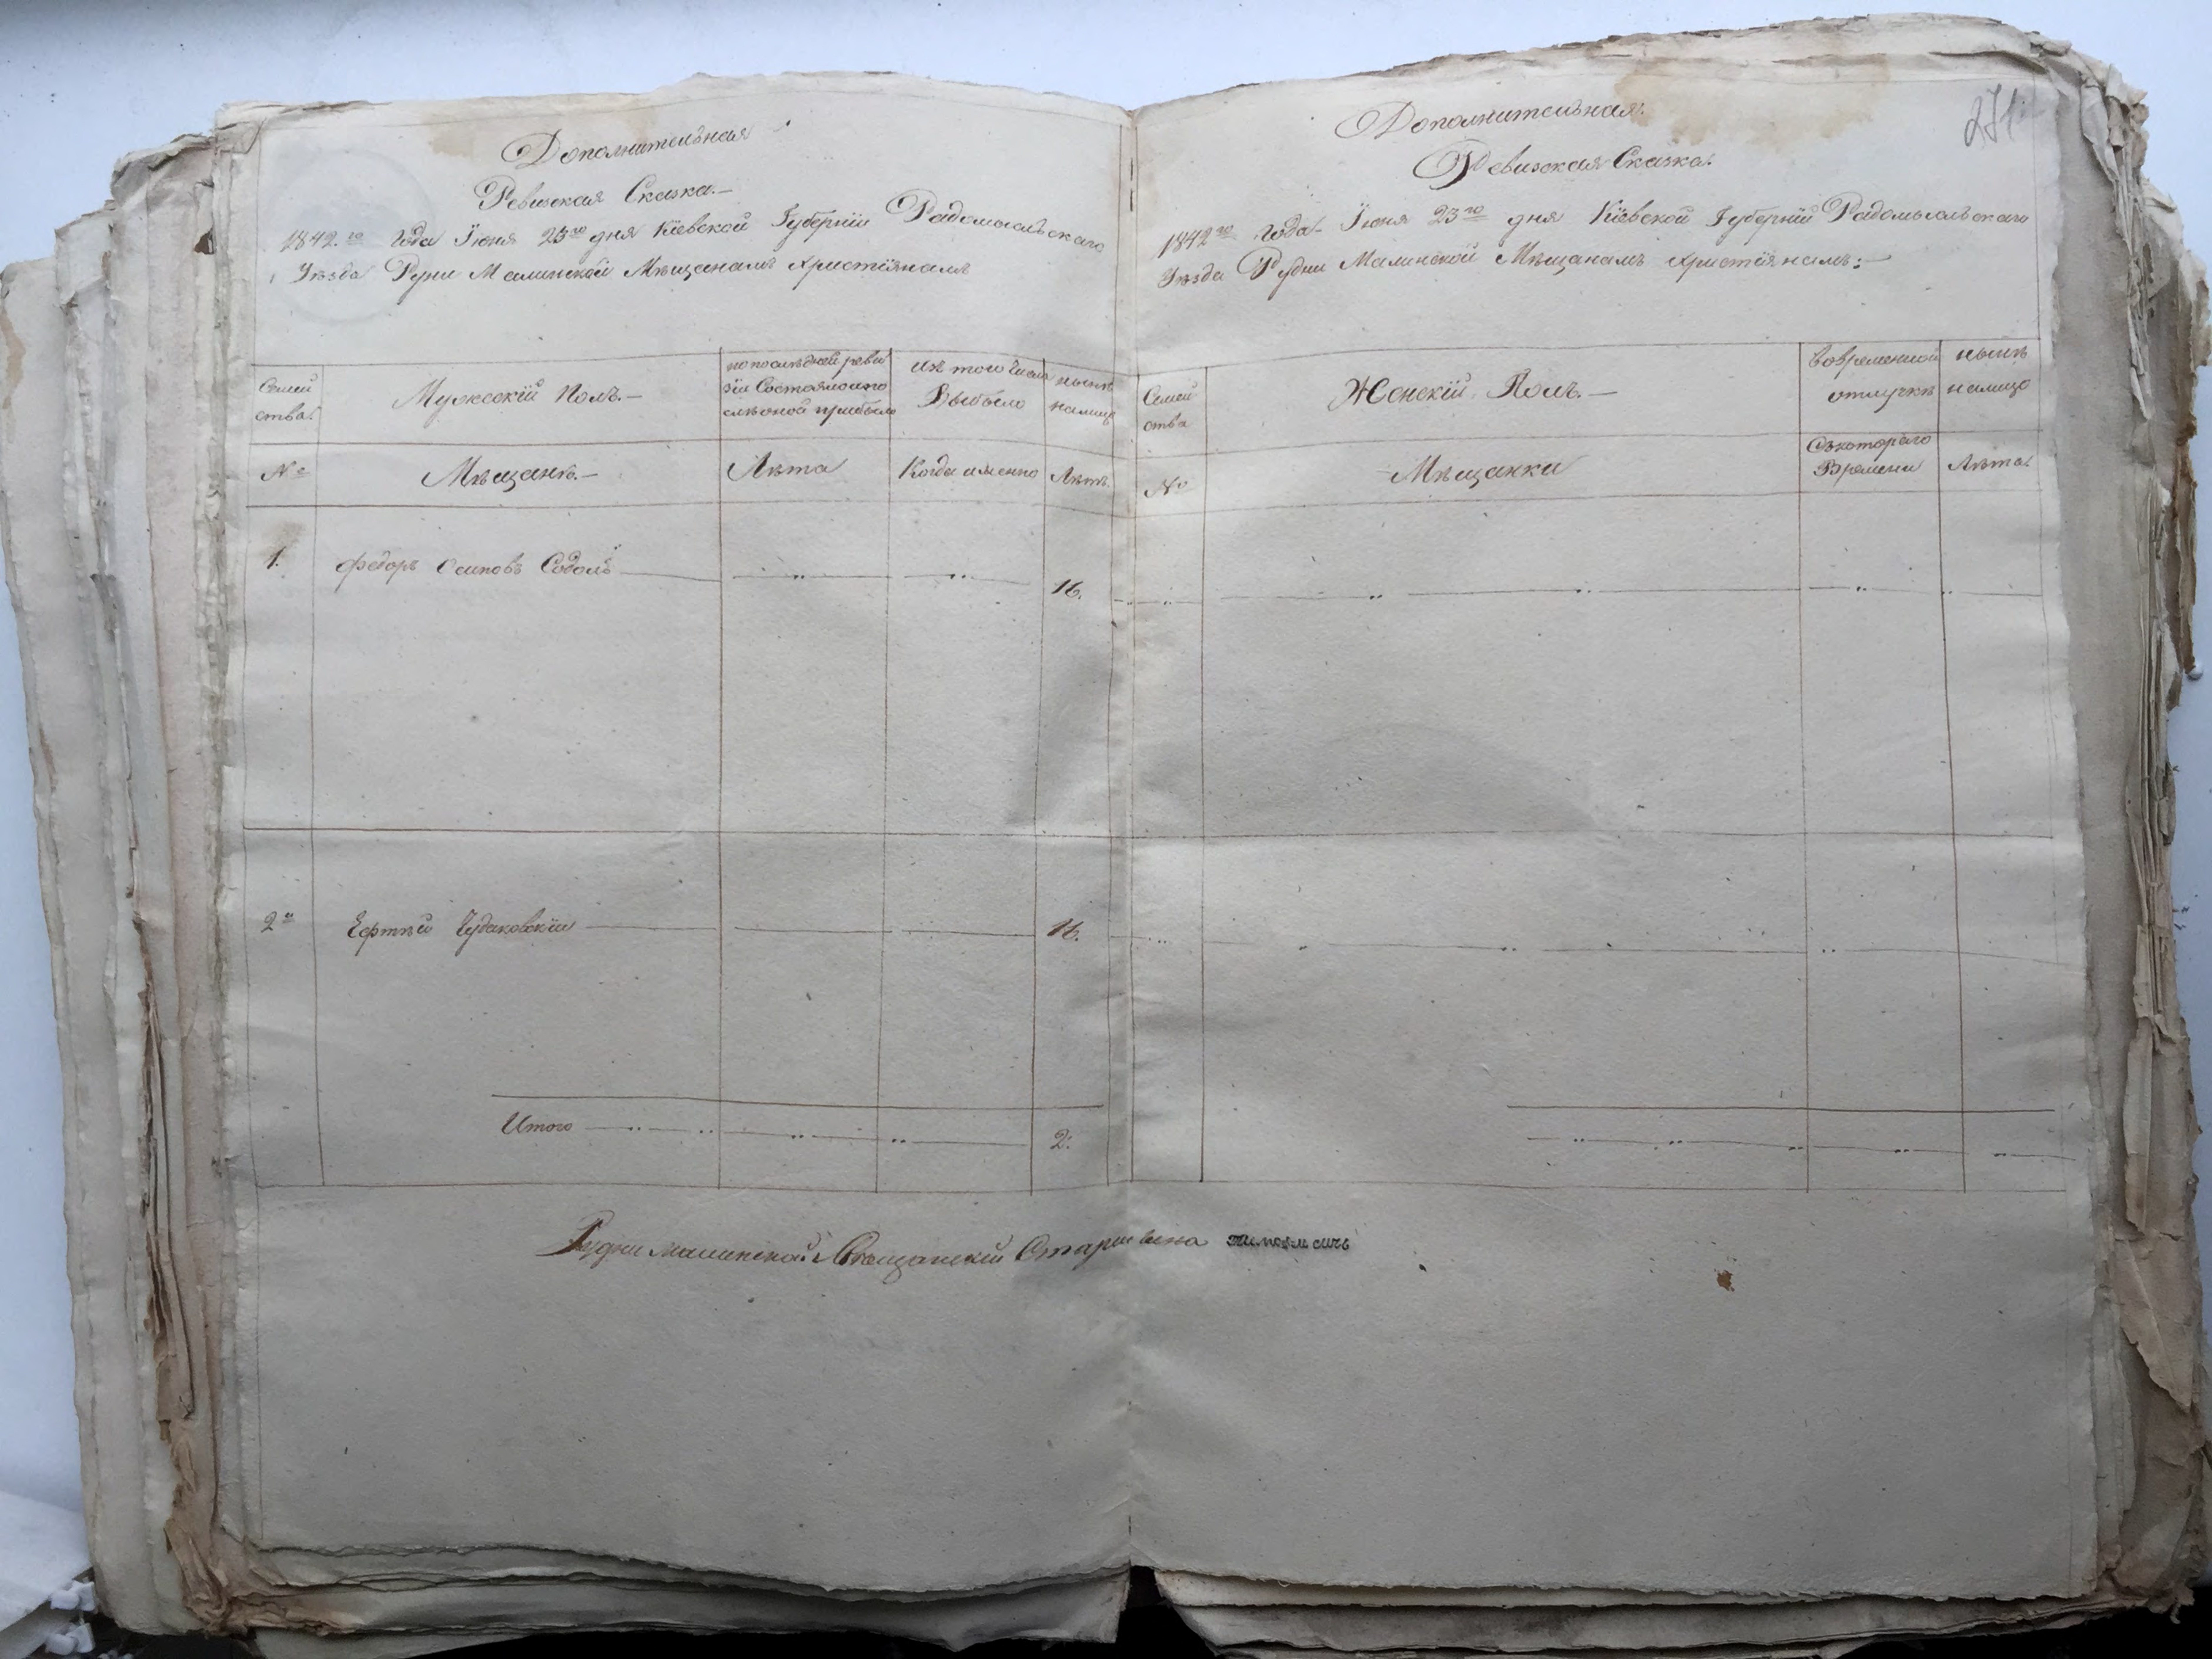 Дополнительная
Ревизская Сказка.—
1842.го Года Їюня 23го дня Кіевской Губерніи Радомысльскаго
Уѣзда Рудни Малинской Мѣщанамъ Христіянамъ
Семей
ства.
Мужескій Полъ.—
по послѣдней реви
зіи Состояло и по
слѣ оной прибыло
изъ того числа
Выбыло
нынѣ
налицо
№
Мѣщанѣ.—
Лѣта
Когда именно
Лѣтъ.
1.
Федоръ Осиповъ Соболь
16.
2й
Чудаковскій
16.
Итого
2.
Рудни Малинской Мѣщанскій Старшина
Дополнительная.
Ревизская Сказка.
271.
1842го Года Їюня 23го дня Кіевской Губерніи Радомысльскаго
Уѣзда Рудни Малинской Мѣщанамъ Христіянамъ:—
Семей
ства
Женскій Полъ.—
Вовременной
отлучкѣ
нынѣ
налицо
№
Мѣщанки
Съкотораго
Времени
Лѣта.